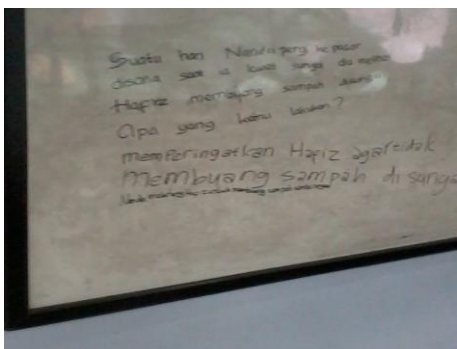 Suatu hari Nanda pergi ke pasar
disana saat ia lewat sungai dia
Hafiz membuang sampah
Apa yang kamu lakukan?
memperingatkan Hafiz agar tidak
membuang sampah di sunga